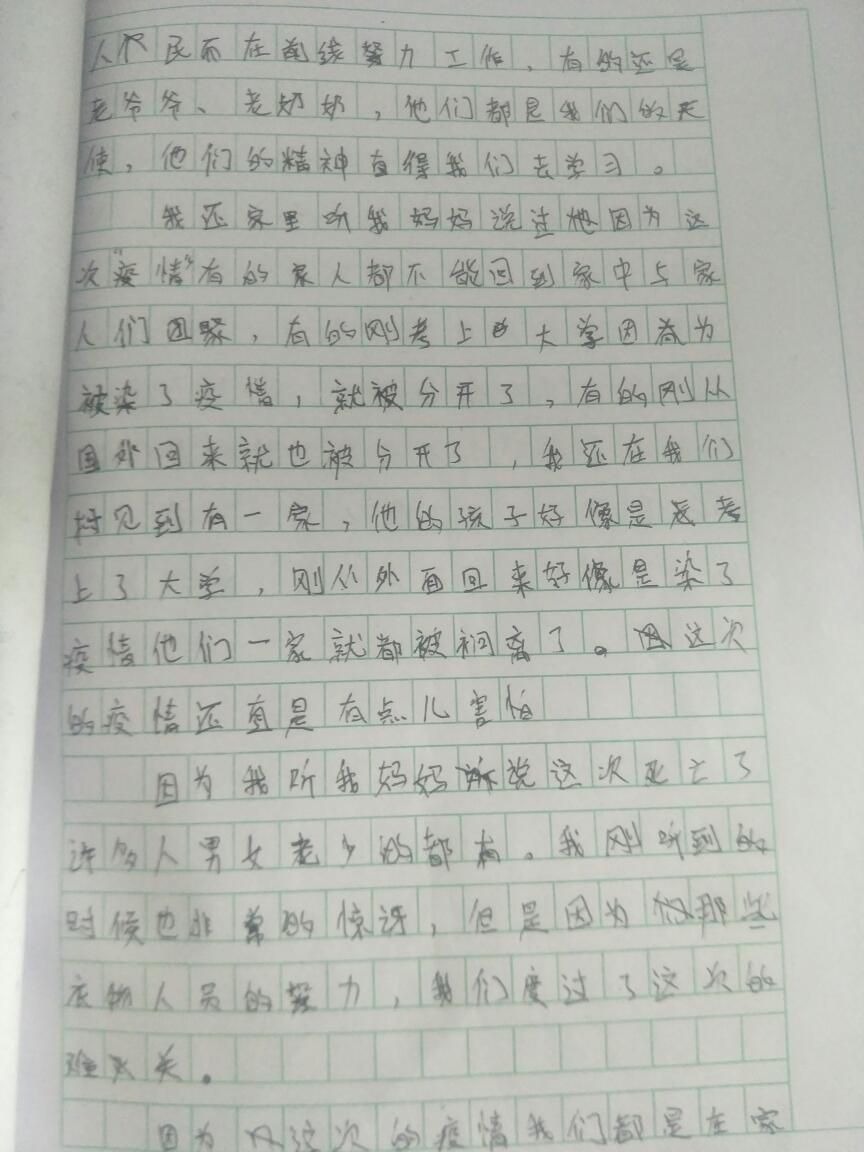 人民而在前线努力工作，有的还是
老爷爷、老奶奶，他们都是我们的天
使，他们的精神直得我们去学习。
我还家里听我妈妈说过他因为这
次“疫情”有的家人都不能回到家中与家
人们团聚，有的刚考上大学因为
被染了疫情，就被分开了，有的刚从
国外回来就也被分开了，我还在我们
村见到有一家，他的孩子好像是考
上了大学，刚从外面回来好像是染了
疫情他们一家就都被离了。这次
的疫情还直是有点儿害怕
因为我听我妈妈说这次死亡了
许多人男女老少的都有。我刚听到的
时候也非常的惊讶，但是因为那些
人员的努力，我们度过了这次的
难关。
因为这次的疫情我们都是在家